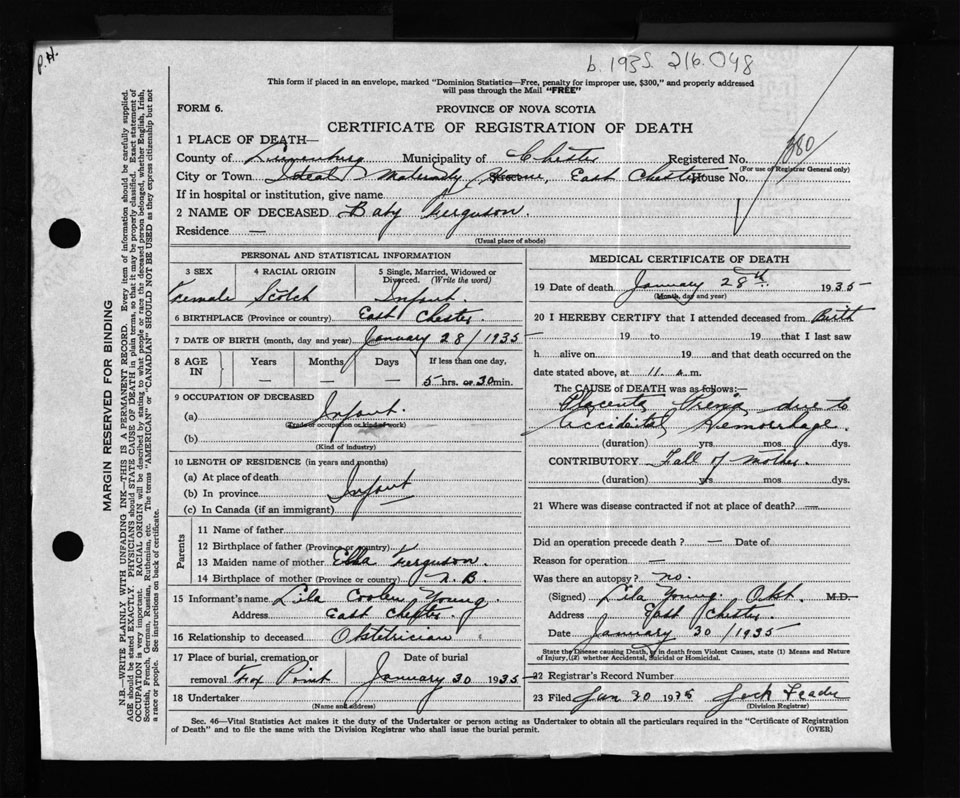 P.H.
b. 1935. 216.048
This form if placed in an envelope, marked "Dominion Statistics—Free, penalty for improper use, $300," and properly addressed
will pass through the Mail "FREE"
FORM 6.
PROVINCE OF NOVA SCOTIA
CERTIFICATE OF REGISTRATION OF DEATH
1 PLACE OF DEATH—
County of Lunenburg Municipality of Chester Registered No. 380
(For use of Registrar General only)
City or Town Ideal Maternity Home, East Chester House No.
If in hospital or institution, give name
2 NAME OF DECEASED Baby Ferguson.
Residence —
(Usual place of abode)
PERSONAL AND STATISTICAL INFORMATION
3 SEX 4 RACIAL ORIGIN 5 Single, Married, Widowed or
Divorced. (Write the word)
Female Scotch Infant.
6 BIRTHPLACE (Province or country) East Chester
7 DATE OF BIRTH (month, day and year) January 28/1935
8 AGE IN Years Months Days If less than one day,
— — — 5 hrs. or 30 min.
9 OCCUPATION OF DECEASED
(a) Infant.
(Trade or occupation or kind of work)
(b)
(Kind of industry)
10 LENGTH OF RESIDENCE (in years and months)
(a) At place of death
(b) In province Infant
(c) In Canada (if an immigrant)
Parents
11 Name of father
12 Birthplace of father (Province or country)
13 Maiden name of mother Ella Ferguson
14 Birthplace of mother (Province or country) N.B.
15 Informant's name Lila Coolen Young
Address East Chester.
16 Relationship to deceased Obstetrician
17 Place of burial, cremation or Date of burial
removal Fox Point January 30 1935
18 Undertaker
(Name and address)
MEDICAL CERTIFICATE OF DEATH
19 Date of death January 28th. 1935
(Month, day and year)
20 I HEREBY CERTIFY that I attended deceased from Birth
19 to 19 that I last saw
h alive on 19 and that death occurred on the
date stated above, at 11. a.m.
The CAUSE of DEATH was as follows:—
Placenta Previa due to
Accidental Hemorrhage.
(duration) yrs. mos. dys.
CONTRIBUTORY Fall of mother.
(duration) yrs mos. dys.
21 Where was disease contracted if not at place of death? —
Did an operation precede death? — Date of
Reason for operation —
Was there an autopsy? no.
(Signed) Lila Young. Obst. M.D.
Address East Chester.
Date January 30/1935
State the Disease causing Death, or in death from Violent Causes, state (1) Means and Nature
of Injury, (2) whether Accidental, Suicidal or Homicidal.
22 Registrar's Record Number
23 Filed Jan 30 1935
(Division Registrar)
Sec. 46—Vital Statistics Act makes it the duty of the Undertaker or person acting as Undertaker to obtain all the particulars required in the "Certificate of Registration
of Death" and to file the same with the Division Registrar who shall issue the burial permit. (OVER)
MARGIN RESERVED FOR BINDING
N.B.—WRITE PLAINLY WITH UNFADING INK—THIS IS A PERMANENT RECORD. Every item of information should be carefully supplied.
AGE should be stated EXACTLY. PHYSICIANS should STATE CAUSE OF DEATH in plain terms, so that it may be properly classified. Exact statement of
OCCUPATION is very important. RACIAL ORIGIN will be described by stating to what people or race the deceased person belonged, whether English, Irish,
Scottish, French, German, Russian, Ruthenian, etc. The terms "AMERICAN" or "CANADIAN" SHOULD NOT BE USED as they express citizenship but not
a race or people. See instructions on back of certificate.